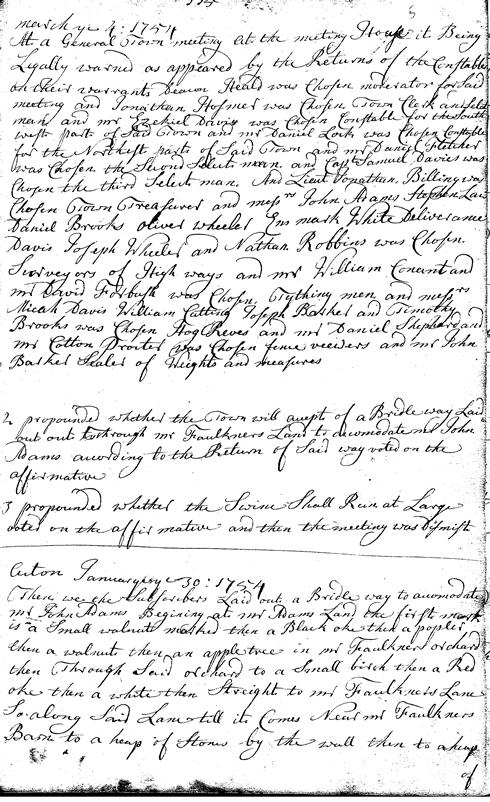 march ye 4: 1754
At a General Town meeting At the meeting House it Being
Legally warned as appeared by the Returns of the Constables
on their warrants Deacon Heald was Chosen moderator for Said
meeting and Jonathan Hosmer was Chosen Town Clerk and select
man and mr Ezekiel Davis was Chosen Constable for the South
west part of Said Town and mr Daniel was Chosen Constable
for the Northest part of Said Town and mr Daniel Fletcher
was Chosen the Second Select man and Capt Samuel Davis was
Chosen the third Select man. And Lieut Jonathan Billing was
Chosen Town Treasurer and messrs John Adams Stephen
Daniel Brooks oliver wheeler Ens mark White Deliverance
Davis Joseph Wheeler and Nathan Robbins was Chosen
Surveyors of High ways and mr William Conant and
mr David Forbush was Chosen Tything men and messrs
Micah Davis William Cutting Joseph Barker and Timothy
Brooks was Chosen Hog Reves and mr Daniel Shephard and
mr Cotton Procter was Chosen fence veeiwers and mr John
Barker Sealer of Weights and measures
2 propounded whether the Town will acept of a Bridle way Laid
out out through mr Faulkners Land to acomodate mr John
Adams acording to the Return of Said way voted on the
affirmative
3 propounded whether the Swine Shall Run at Large
voted on the affirmative and then the meeting was Dismist
Acton January ye 30: 1754
Then we the Subscribers Laid out a Bridle way to acomodate
mr John Adams Begining at mr Adams Land the first mark
is a Small walnut marked then a Black oke then a popler
then a walnut then an apple tree in mr Faulkners orchard
then Through Said orchard to a Small birch then a Red
oke then a white then Streight to mr Faulkners Lane
So along Said Lane till it Comes Near mr Faulkners
Barn to a heap of Stones by the wall then to a heap
of